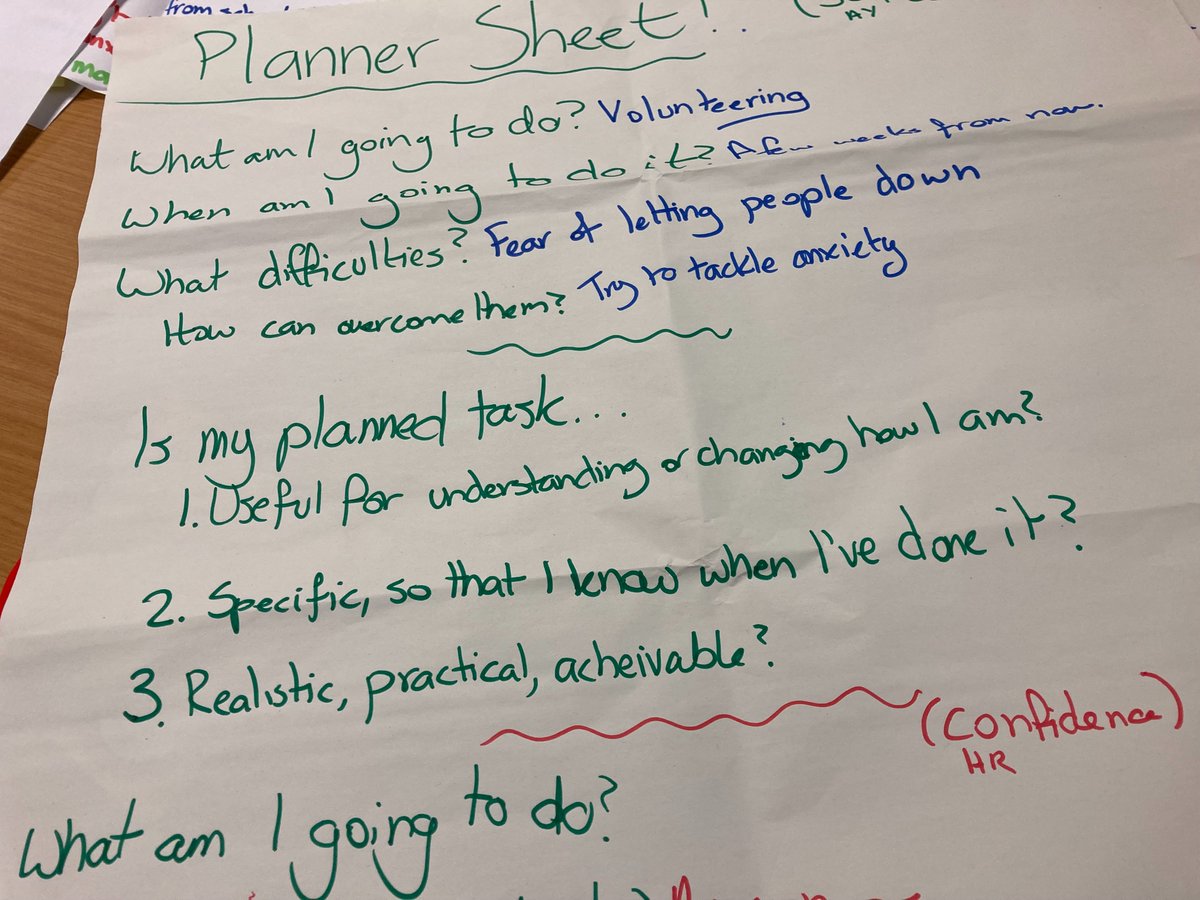 from
Planner Sheet!
AY
What am I going to do? Volunteering
When am I going to do it? A few weeks from now.
What difficulties? Fear of letting people down
How can overcome them? Try to tackle anxiety
Is my planned task...
1. Useful for understanding or changing how I am?
2. Specific, so that I know when I've done it?
3. Realistic, practical, acheivable?
(Confidence)
HR
What am I going to do?